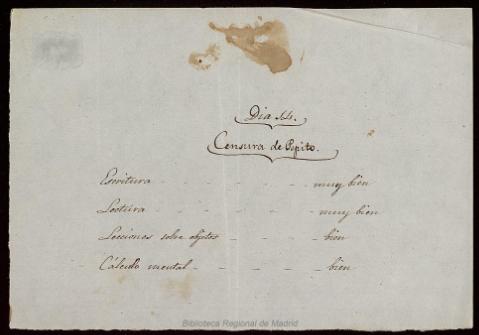 Dia 14.
Censura de Pepito.
Escritura - - - - - - muy bien
Lectura - - - - - - muy bien
Lecciones sobre objetos - - - - bien
Cálculo mental - - - - - bien
Biblioteca Regional de Madrid